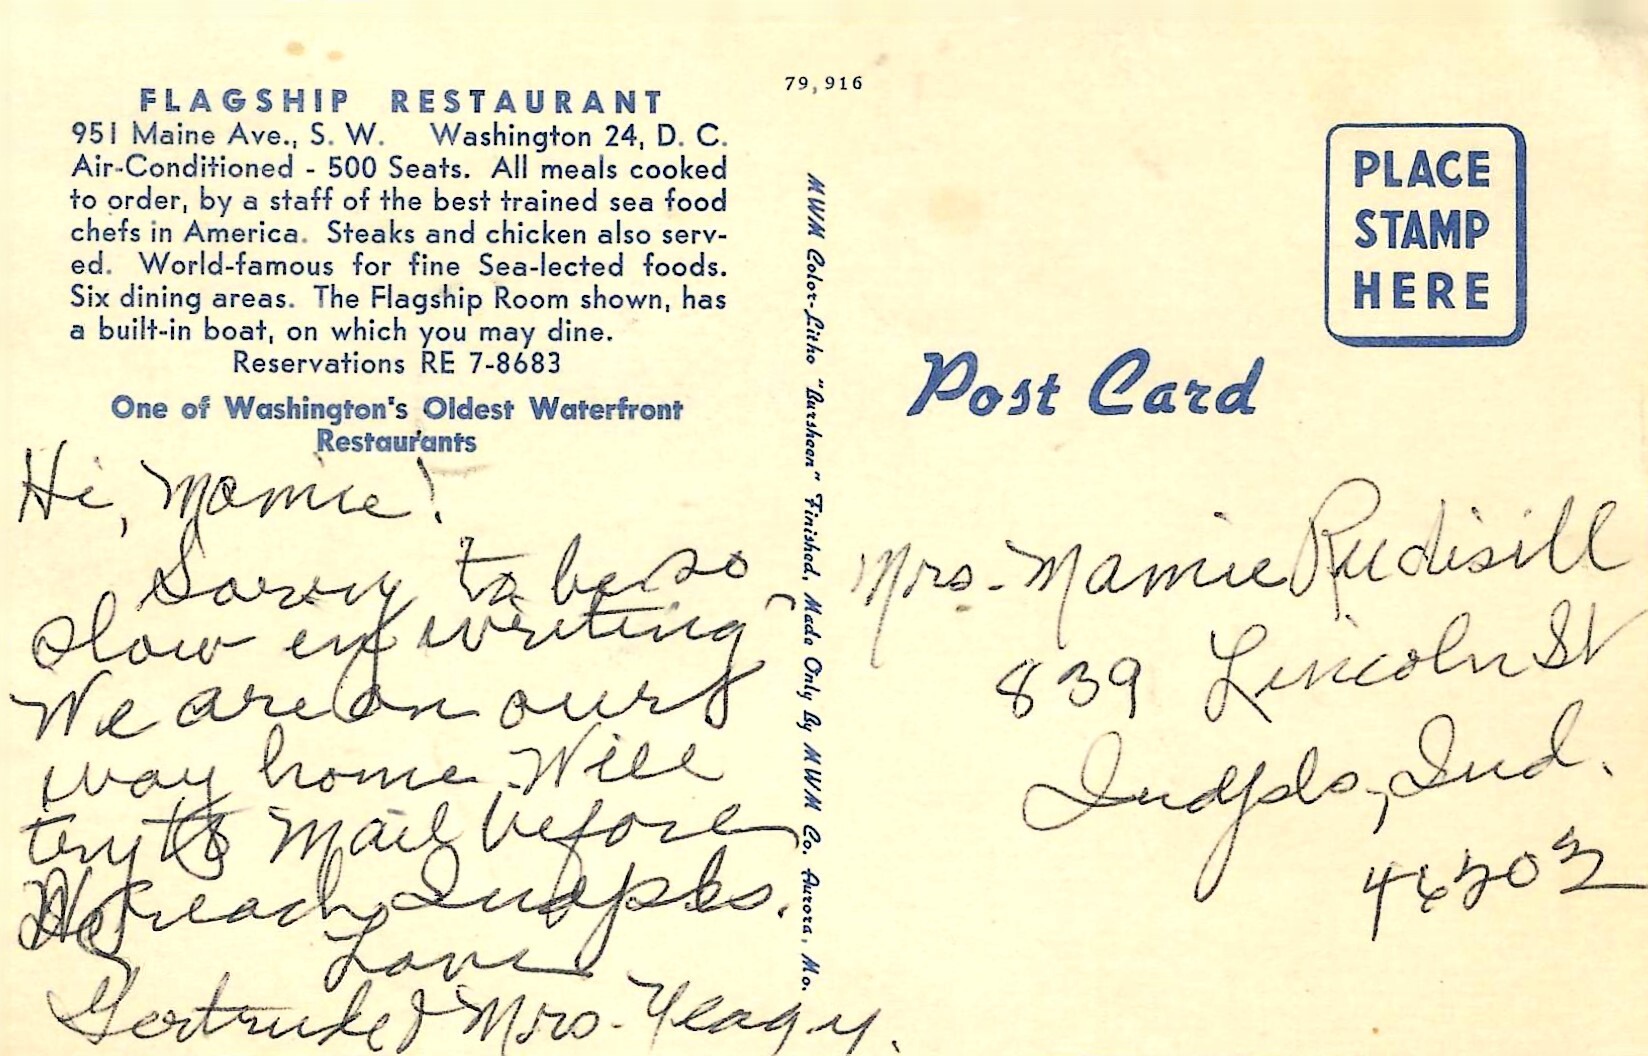 FLAGSHIP RESTAURANT
951 Maine Ave., S. W. Washington 24, D. C.
Air-Conditioned - 500 Seats. All meals cooked
to order, by a staff of the best trained sea food
chefs in America. Steaks and chicken also serv-
ed. World-famous for fine Sea-lected foods.
Six dining areas. The Flagship Room shown, has
a built-in boat, on which you may dine.
Reservations RE 7-8683
One of Washington's Oldest Waterfront
Restaurants
Hi, Mamie!
Sorry to be so
slow in writing
We are on our
way home Will
try to Mail before
We reach Indpls.
Love
Gertrude & Mrs. Yeagy.
79,916
MWM Color-Litho "Bursheen" Finished, Made Only By MWM Co. Aurora, Mo.
PLACE
STAMP
HERE
Post Card
Mrs. Mamie Rudisill
839 Lincoln St
Indpls, Ind.
46202